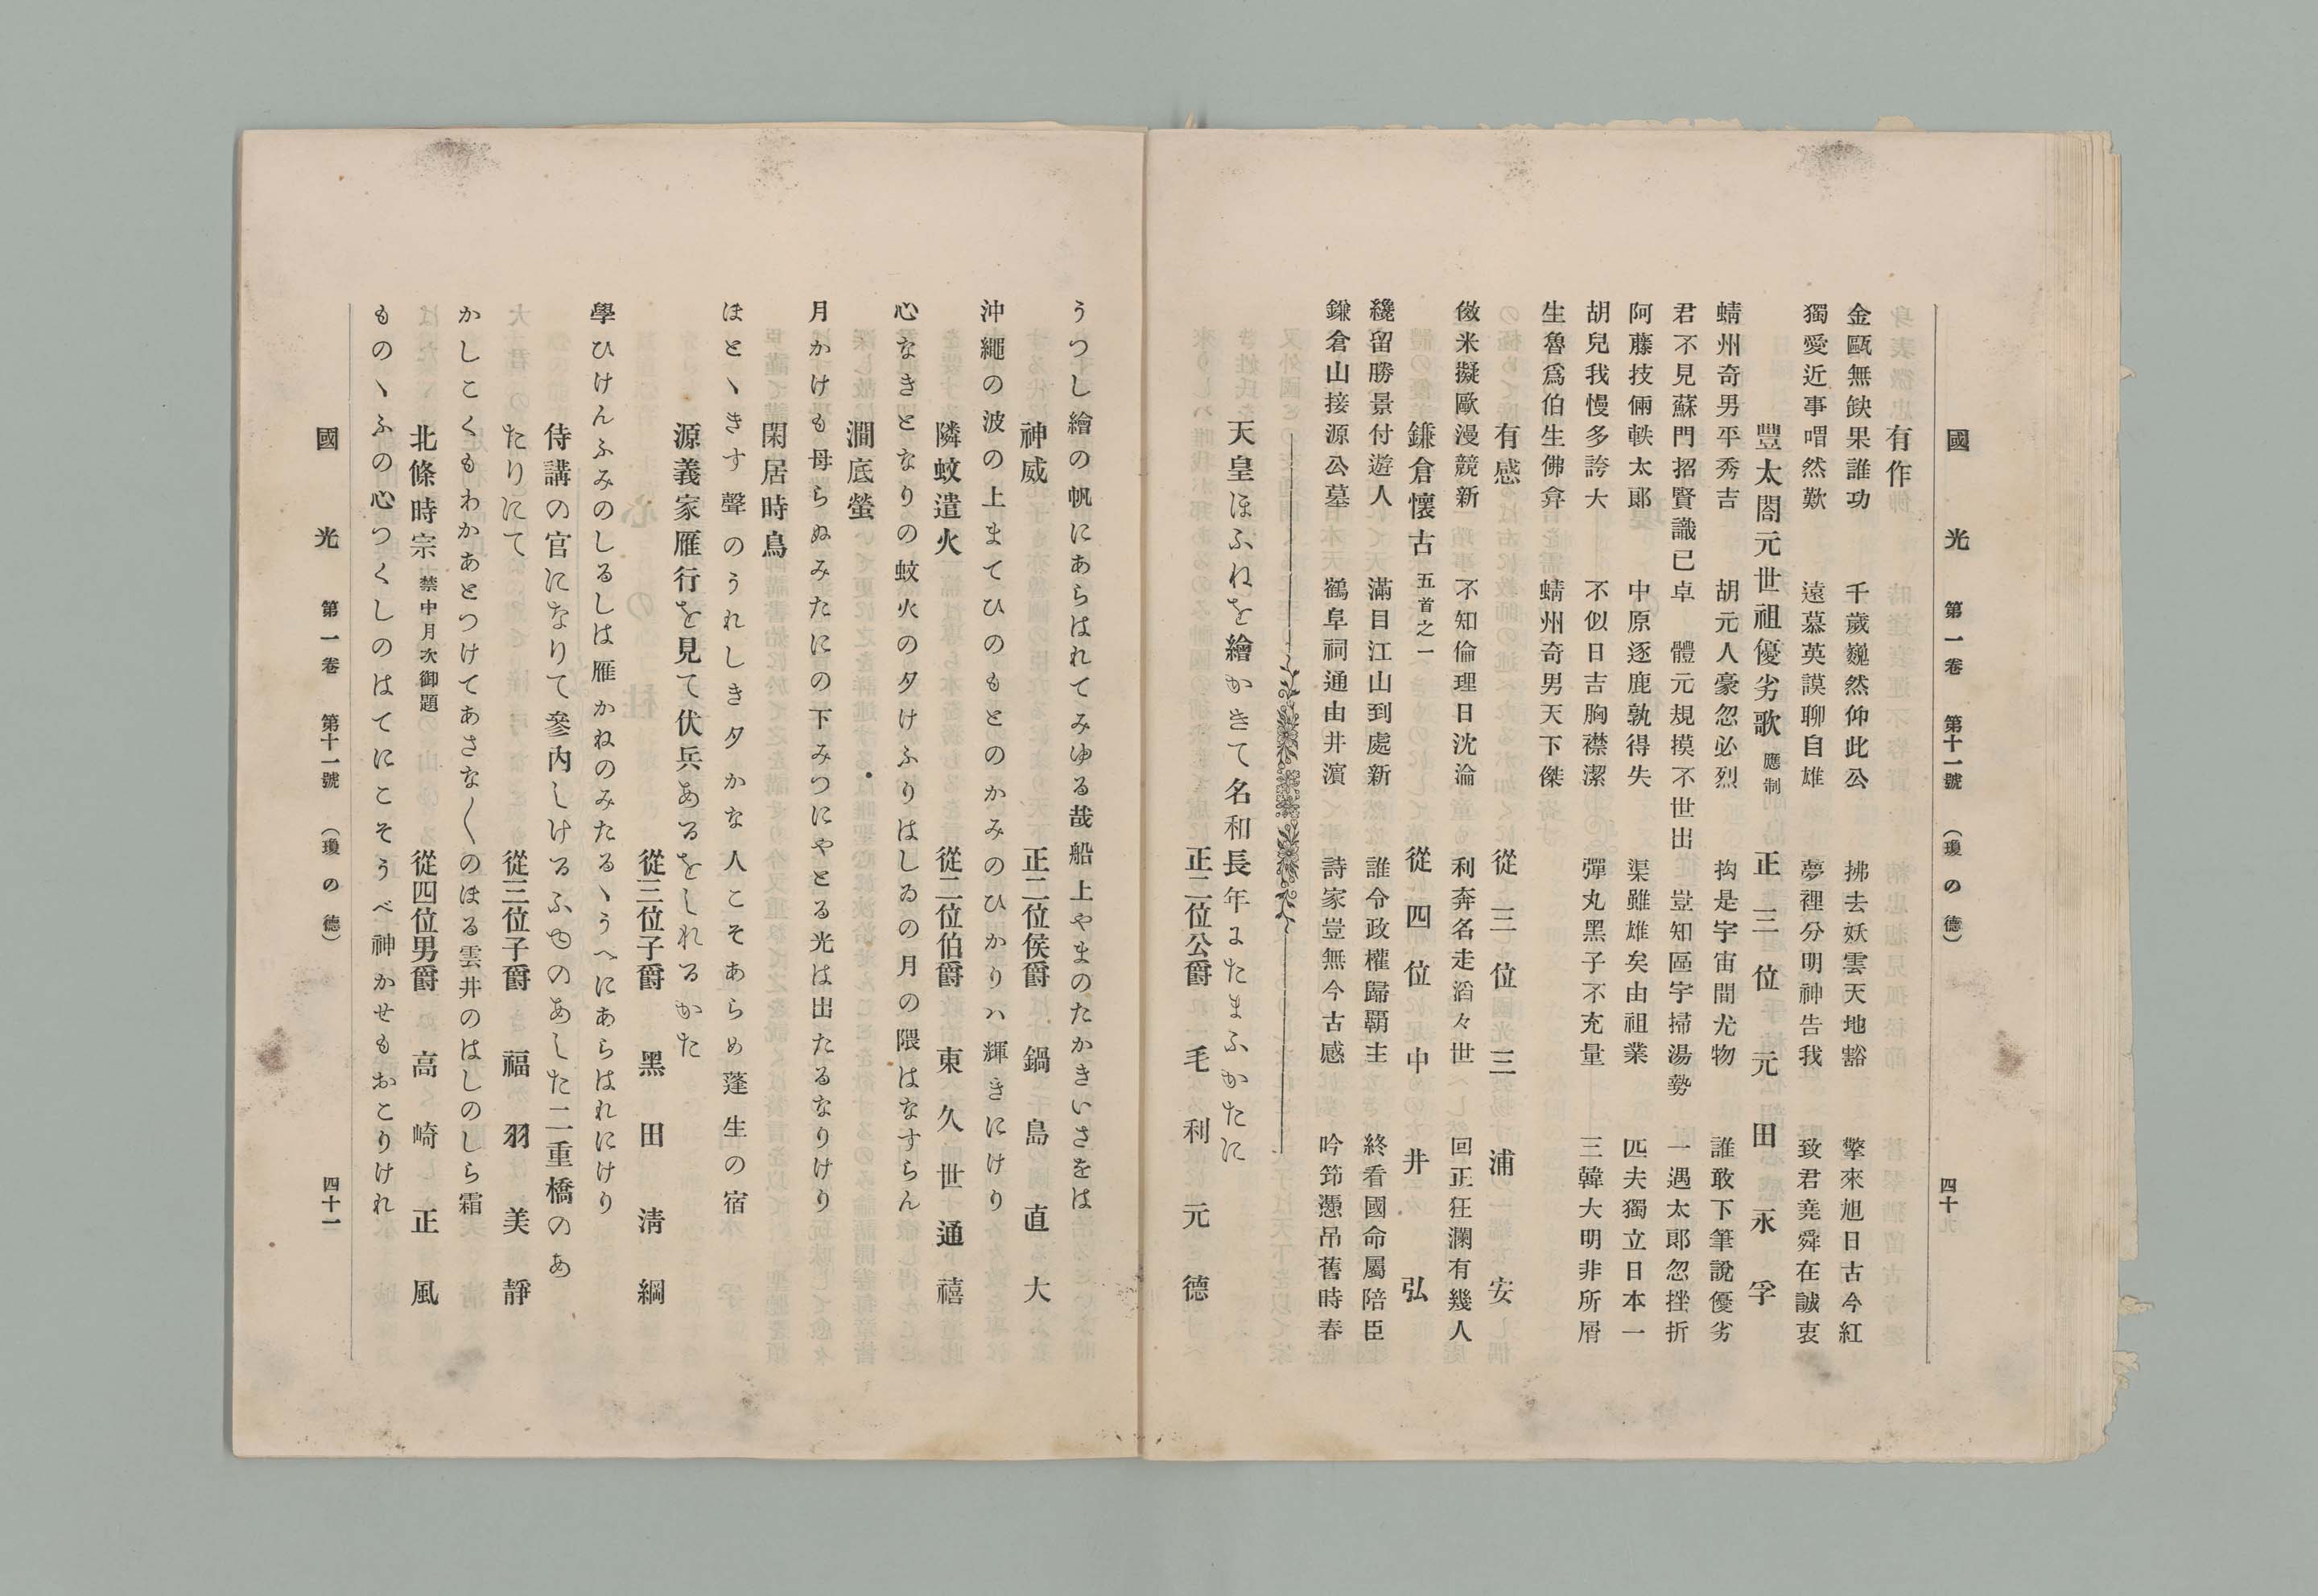 國光 第一卷 第十一號 (瓊の德) 四十
有作
金甌無缺果誰功 千歲巍然仰此公 拂去妖雲天地豁 擎來旭日古今紅
獨愛近事喟然歎 遠慕英謨聊自雄 夢裡分明神告我 致君堯舜在誠衷
豐太閤元世祖優劣歌 應制 正三位元田永孚
蜻州奇男平秀吉 胡元人豪忽必烈 抅是宇宙間尤物 誰敢下筆說優劣
君不見蘇門招賢識已卓 體元規摸不世出 豈知區宇掃湯勢 一遇太郎忽挫折
阿藤技倆軼太郎 中原逐鹿孰得失 渠雖雄矣由祖業 匹夫獨立日本一
胡兒我慢多誇大 不似日吉胸襟潔 彈丸黑子不充量 三韓大明非所屑
生魯爲伯生佛弇 蜻州奇男天下傑
有感 從三位三浦安
倣米擬歐漫競新 不知倫理日沈淪 利奔名走滔々世 回正狂瀾有幾人
鎌倉懷古 五首之一 從四位中井弘
纔留勝景付遊人 滿目江山到處新 誰令政權歸覇主 終看國命屬陪臣
鎌倉山接源公墓 鶴阜祠通由井濱 詩家豈無今古感 吟筇憑吊舊時春
天皇ほふねを繪かきて名和長年またまふかたに
正二位公爵 毛利元德
うつし繪の帆にあらはれてみゆる哉船上やまのたかきいさをは
神威 正二位侯爵 鍋島直大
沖繩の波の上まてひのもとのかみのひかりハ輝きにけり
隣蚊遣火 從二位伯爵 東久世通禧
心なきとなりの蚊火の夕けふりはしゐの月の隈はなすらん
澗底螢
月かけも母らぬみたにの下みつにやとる光は出たるなりけり
閑居時鳥
ほとゝきす聲のうれしき夕かな人こそあらめ蓬生の宿
源義家雁行を見て伏兵あるをしれるかた
從三位子爵 黑田淸綱
學ひけんふみのしるしは雁かねのみたるゝうへにあらはれにけり
侍講の官になりて參內しけるふゆのあした二重橋のあ
たりにて 從三位子爵 福羽美靜
かしこくもわかあとつけてあさな〱のほる雲井のはしのしら霜
北條時宗 禁中月次御題 從四位男爵 高崎正風
ものゝふの心つくしのはてにこそうべ神かせもおこりけれ
國光 第一卷 第十一號 (瓊の德) 四十一